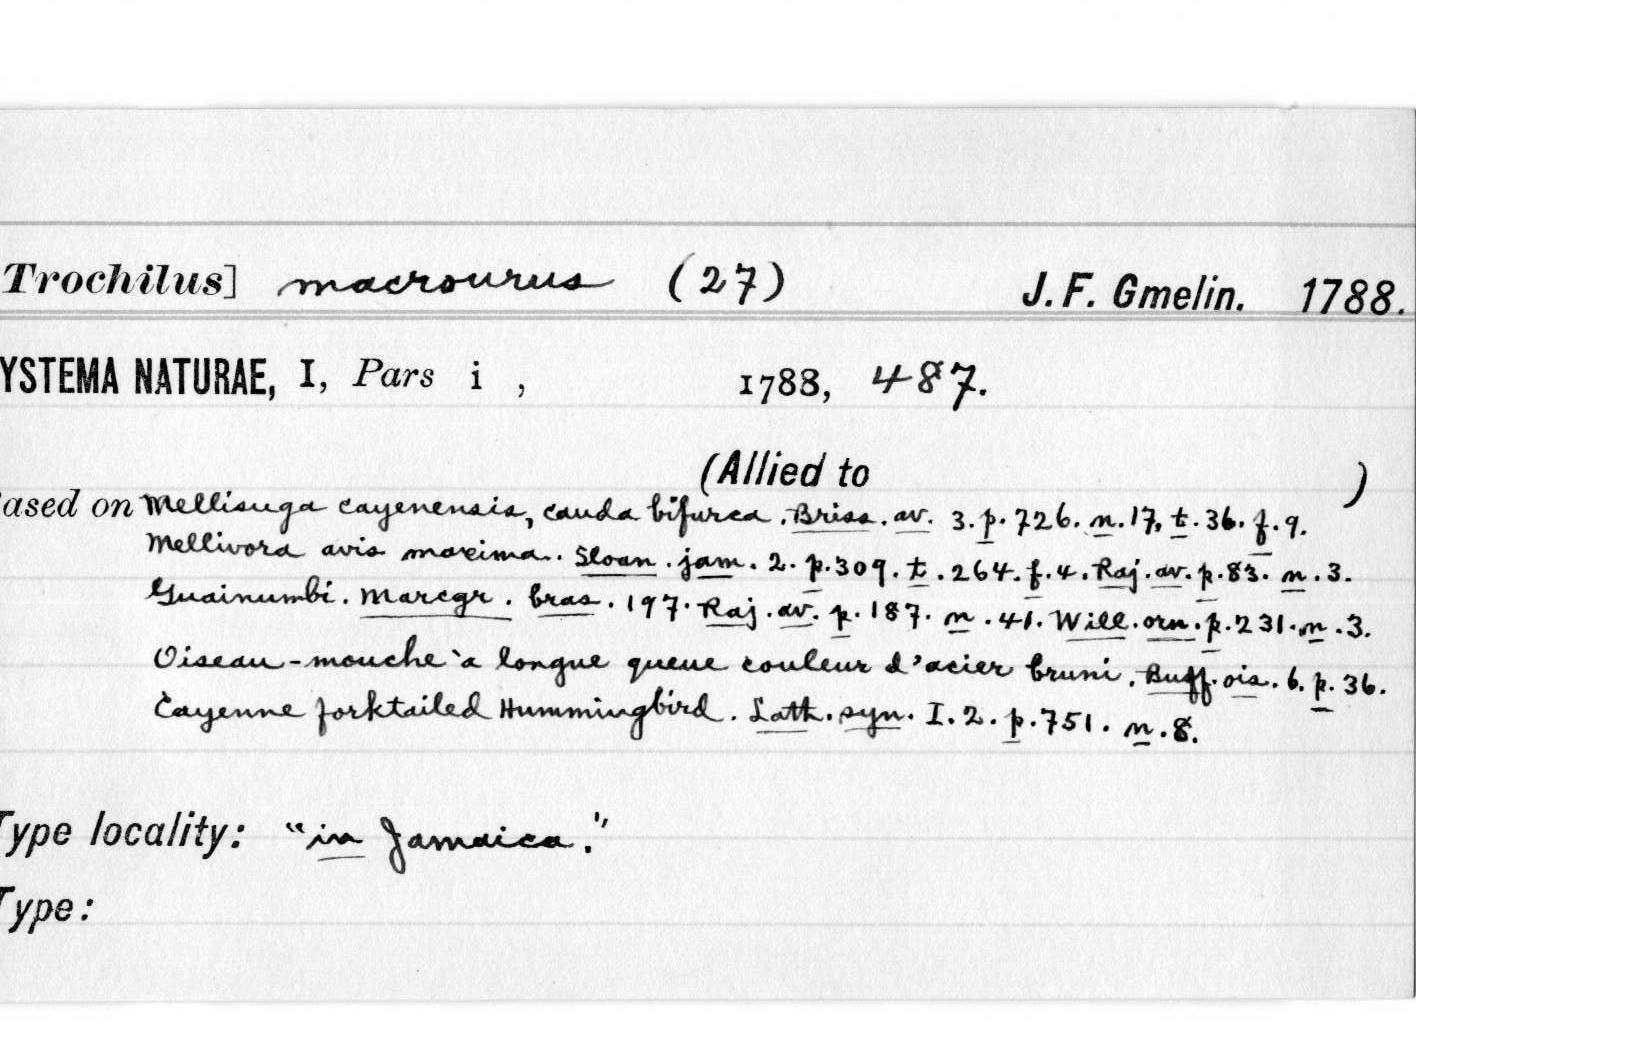 Trochilus] macrourus (27) J. F. Gmelin. 1788.
YSTEMA NATURAE, I, Pars i , 1788, 487.
(Allied to )
ased on Mellisuga cayenensis, cauda bifurca. Briss. av. 3. p. 726. n. 17, t. 36. f. 9.
Mellivora avis maxima. Sloan. jam. 2. p. 309. t. 264. f. 4. Raj. av. p. 83. n. 3.
Guainumbi. Marcgr. bras. 197. Raj. av. p. 187. n. 41. Will. orn. p. 231. n. 3.
Oiseau-mouche à longue queue couleur d'acier bruni. Buff. ois. 6. p. 36.
Cayenne forktailed Hummingbird. Lath. syn. I. 2. p. 751. n. 8.
Type locality: "in Jamaica."
Type: